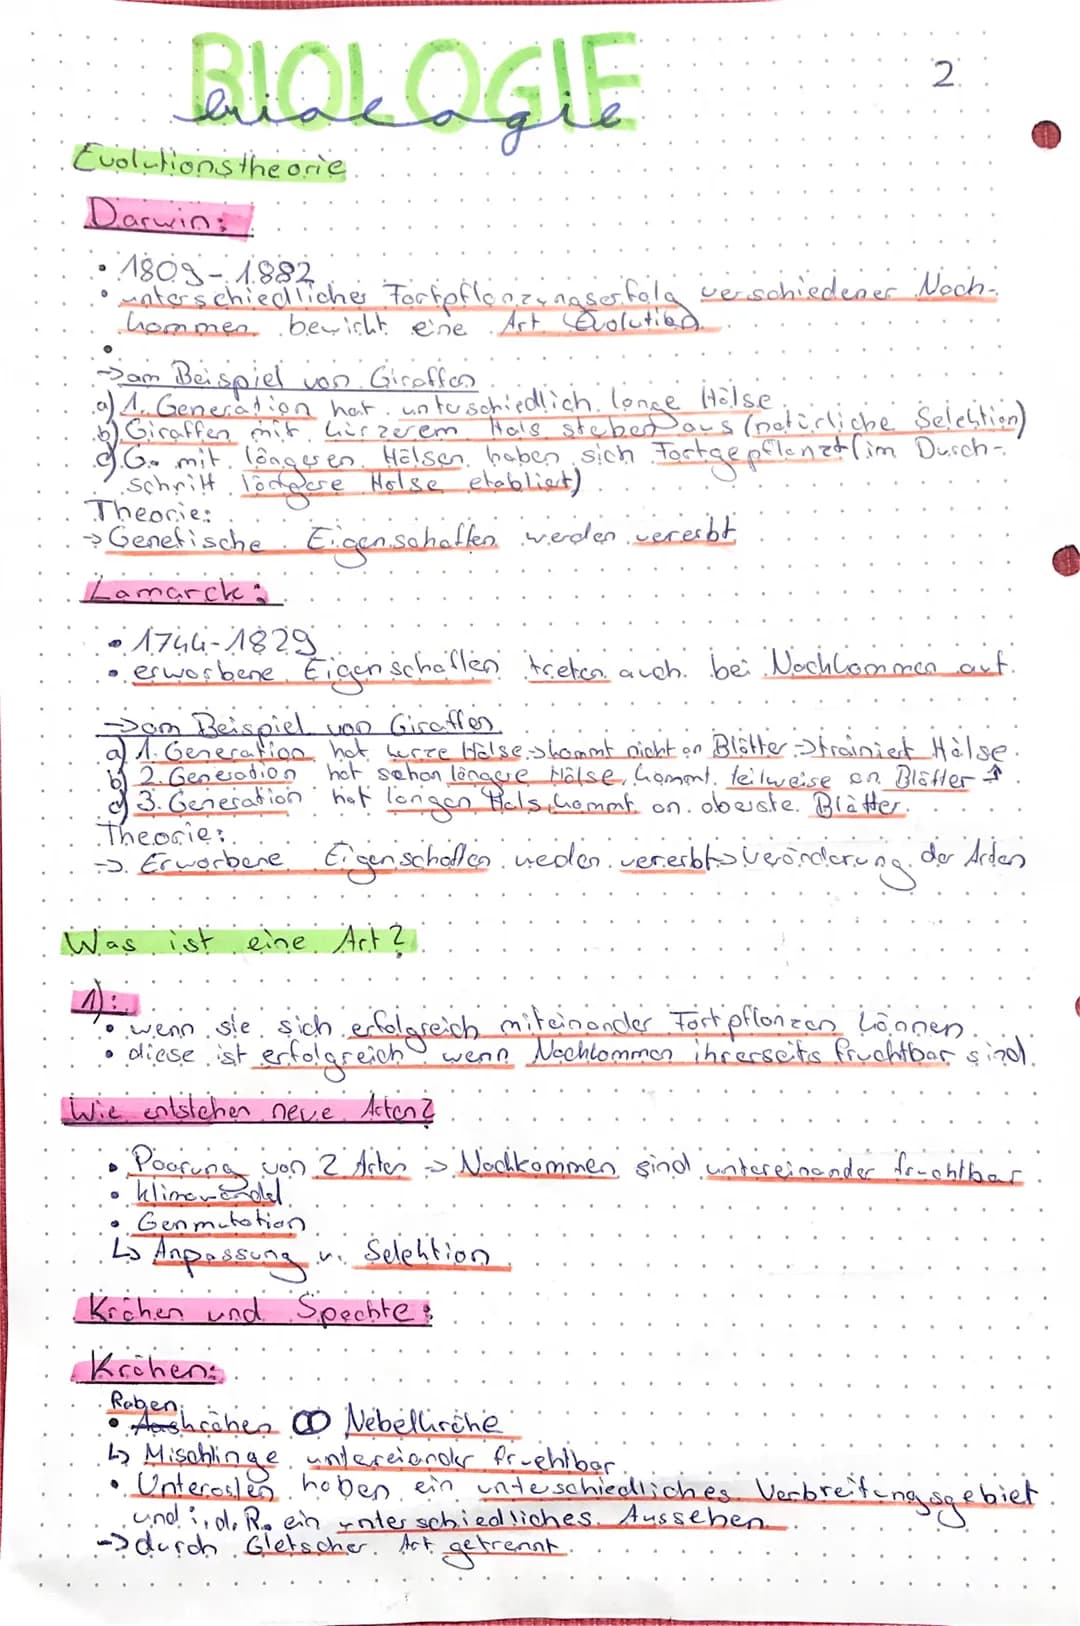 BIOLOGIE
biologie
2
Evolutionstheorie
Darwin:
• 1809-1882
• unterschiedlicher Fortpflanzungserfolg verschiedener Nach-
kommen bewirkt eine Art Evolution
•
→ am Beispiel von Giraffen
a) 1. Generation hat unterschiedlich lange Hälse
b) Giraffen mit kürzerem Hals sterben aus (natürliche Selektion)
c) G. mit längeren Hälsen haben sich Fortgepflanzt (im Durch-
schnitt längere Hälse etabliert)
Theorie:
→ Genetische Eigenschaften werden vererbt
Lamarck:
• 1744-1829
• erworbene Eigenschaften treten auch bei Nachkommen auf.
→ am Beispiel von Giraffen
a) 1. Generation hat kurze Hälse → kommt nicht an Blätter → trainiert Hälse
b) 2. Generation hat schon längere Hälse, kommt teilweise an Blätter ↑
c) 3. Generation hat langen Hals, kommt an oberste Blätter.
Theorie:
→ Erworbene Eigenschaften weden vererbt → Veränderung der Arten
Was ist eine Art?
1):
• wenn sie sich erfolgreich miteinander Fortpflanzen können
• diese ist erfolgreich wenn Nachkommen ihrerseits fruchtbar sind.
Wie entstehen neue Arten?
• Paarung von 2 Arten → Nachkommen sind untereinander fruchtbar
• Klimawandel
• Genmutation
↳ Anpassung u. Selektion
Krähen und Spechte:
Krähen:
Raben
• Aaskrähen ⚭ Nebelkrähe
↳ Mischlinge untereiander fruchtbar
• Unterarten haben ein unteschiedliches Verbreitungsgebiet
und i. d. R. ein unterschiedliches Aussehen
→ durch Gletscher Art getrennt